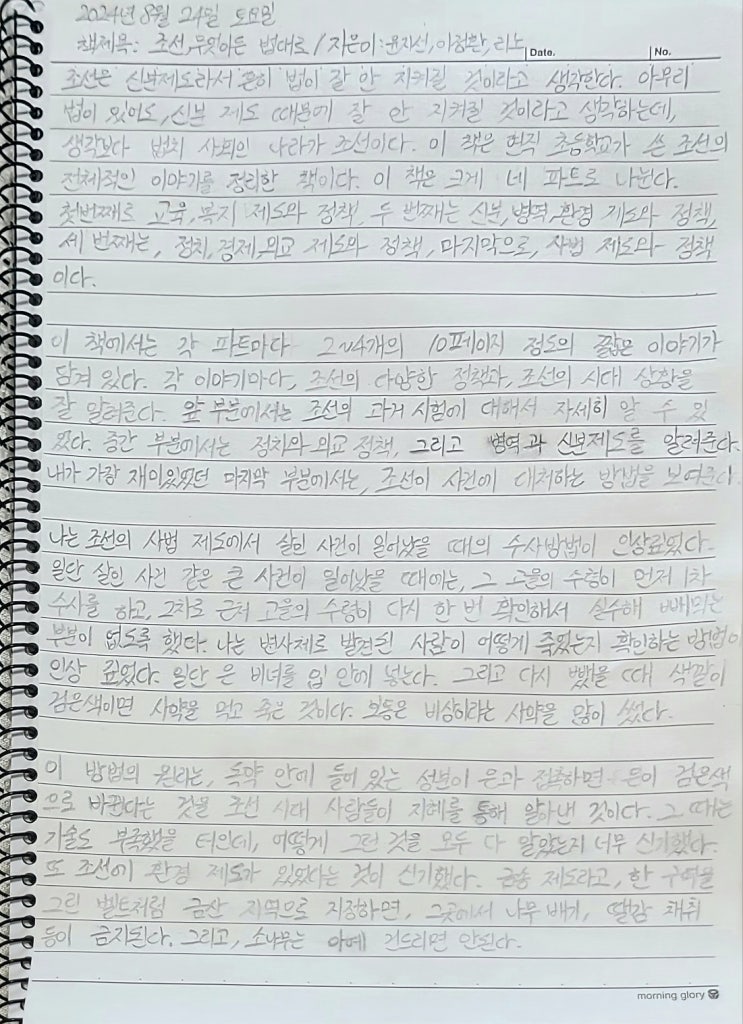 2024년 8월 24일 토요일
책제목: 조선, 무엇이든 법대로 / 지은이: 윤지선, 이정환, 리노
Date. No.
조선은 신분제도라서 흔히 법이 잘 안 지켜질 것이라고 생각한다. 아무리
법이 있어도, 신분 제도 때문에 잘 안 지켜질 것이라고 생각하는데,
생각보다 법치 사회인 나라가 조선이다. 이 책은 현직 초등학교가 쓴 조선의
전체적인 이야기를 정리한 책이다. 이 책은 크게 네 파트로 나뉜다.
첫번째로 교육, 복지 제도와 정책, 두 번째는 신분, 병역, 환경 제도와 정책,
세 번째는, 정치, 경제, 외교 제도와 정책, 마지막으로, 사법 제도와 정책
이다.
이 책에서는 각 파트마다 2~4개의 10페이지 정도의 짧은 이야기가
담겨 있다. 각 이야기마다, 조선의 다양한 정책과, 조선의 시대 상황을
잘 알려준다. 앞 부분에서는 조선의 과거 시험에 대해서 자세히 알 수 있
었다. 중간 부분에서는 정치와 외교 정책, 그리고 병역과 신분제도를 알려준다.
내가 가장 재미있었던 마지막 부분에서는, 조선이 사건에 대처하는 방법을 보여준다.
나는 조선의 사법 제도에서 살인 사건이 일어났을 때의 수사방법이 인상깊었다.
일단 살인 사건 같은 큰 사건이 일어났을 때에는, 그 고을의 수령이 먼저 1차
수사를 하고, 2차로 근처 고을의 수령이 다시 한 번 확인해서 실수해 빼먹는
부분이 없도록 했다. 나는 변사체로 발견된 사람이 어떻게 죽었는지 확인하는 방법이
인상 깊었다. 일단 은 비녀를 입 안에 넣는다. 그리고 다시 뺐을 때 색깔이
검은색이면 사약을 먹고 죽은 것이다. 보통은 비상이라는 사약을 많이 썼다.
이 방법의 원리는, 독약 안에 들어 있는 성분이 은과 접촉하면 은이 검은색
으로 바뀐다는 것을 조선 시대 사람들이 지혜를 통해 알아낸 것이다. 그 때는
기술도 부족했을 터인데, 어떻게 그런 것을 모두 다 알았는지 너무 신기했다.
또 조선에 환경 제도가 있었다는 것이 신기했다. 금송 제도라고, 한 구역을
그린 벨트처럼 금산 지역으로 지정하면, 그곳에서 나무 베기, 땔감 채취
등이 금지된다. 그리고, 소나무는 아예 건드리면 안된다.
morning glory